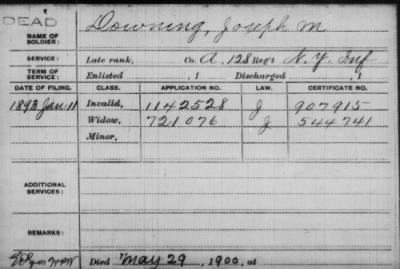 DEAD
NAME OF SOLDIER: Downing, Joseph M
SERVICE: Late rank, Co. A, 128 Reg't N.Y. Inf
TERM OF SERVICE: Enlisted , 1 Discharged , 1
DATE OF FILING. CLASS. APPLICATION NO. LAW. CERTIFICATE NO.
1893 Jan 11 Invalid, 1142528 J 907915
Widow, 721076 J 544741
Minor,
ADDITIONAL SERVICES:
REMARKS:
Died May 29, 1900, at